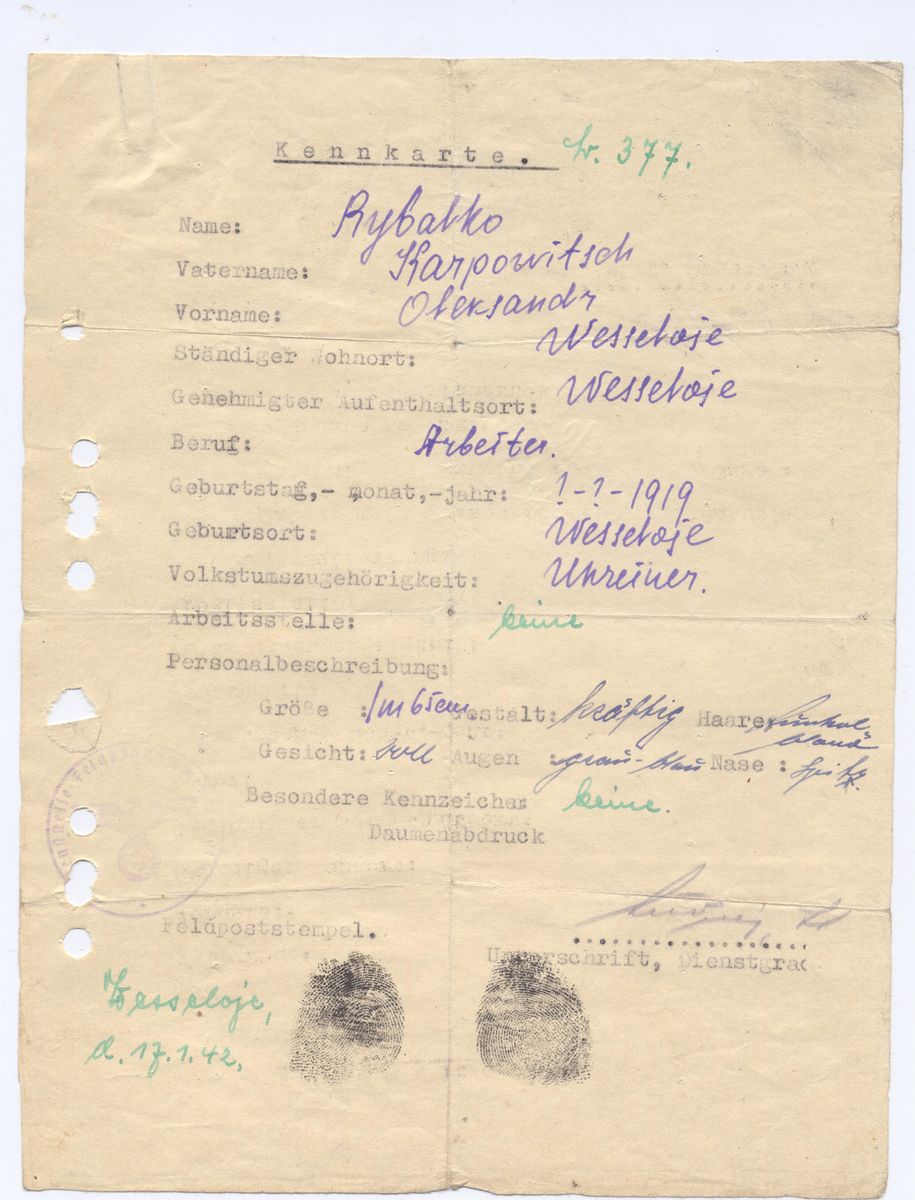 Kennkarte. Nr. 377.
Name: Rybalko
Vatername: Karpowitsch
Vorname: Oleksandr
Ständiger Wohnort: Wesseloje
Genehmigter Aufenthaltsort: Wesseloje
Beruf: Arbeiter.
Geburtstag,- monat,-jahr: ?-?-1919
Geburtsort: Wesseloje
Volkstumszugehörigkeit: Ukreiner.
Arbeitsstelle: keine
Personalbeschreibung:
Größe : 1m65cm. Gestalt: kräftig Haare: dunkel-
blond
Gesicht: voll Augen : grau-blau Nase : spitz.
Besondere Kennzeichen keine.
Daumenabdruck
Feldpoststempel.
Unterschrift, Dienstgrad
Wesseloje,
d. 17.1.42.